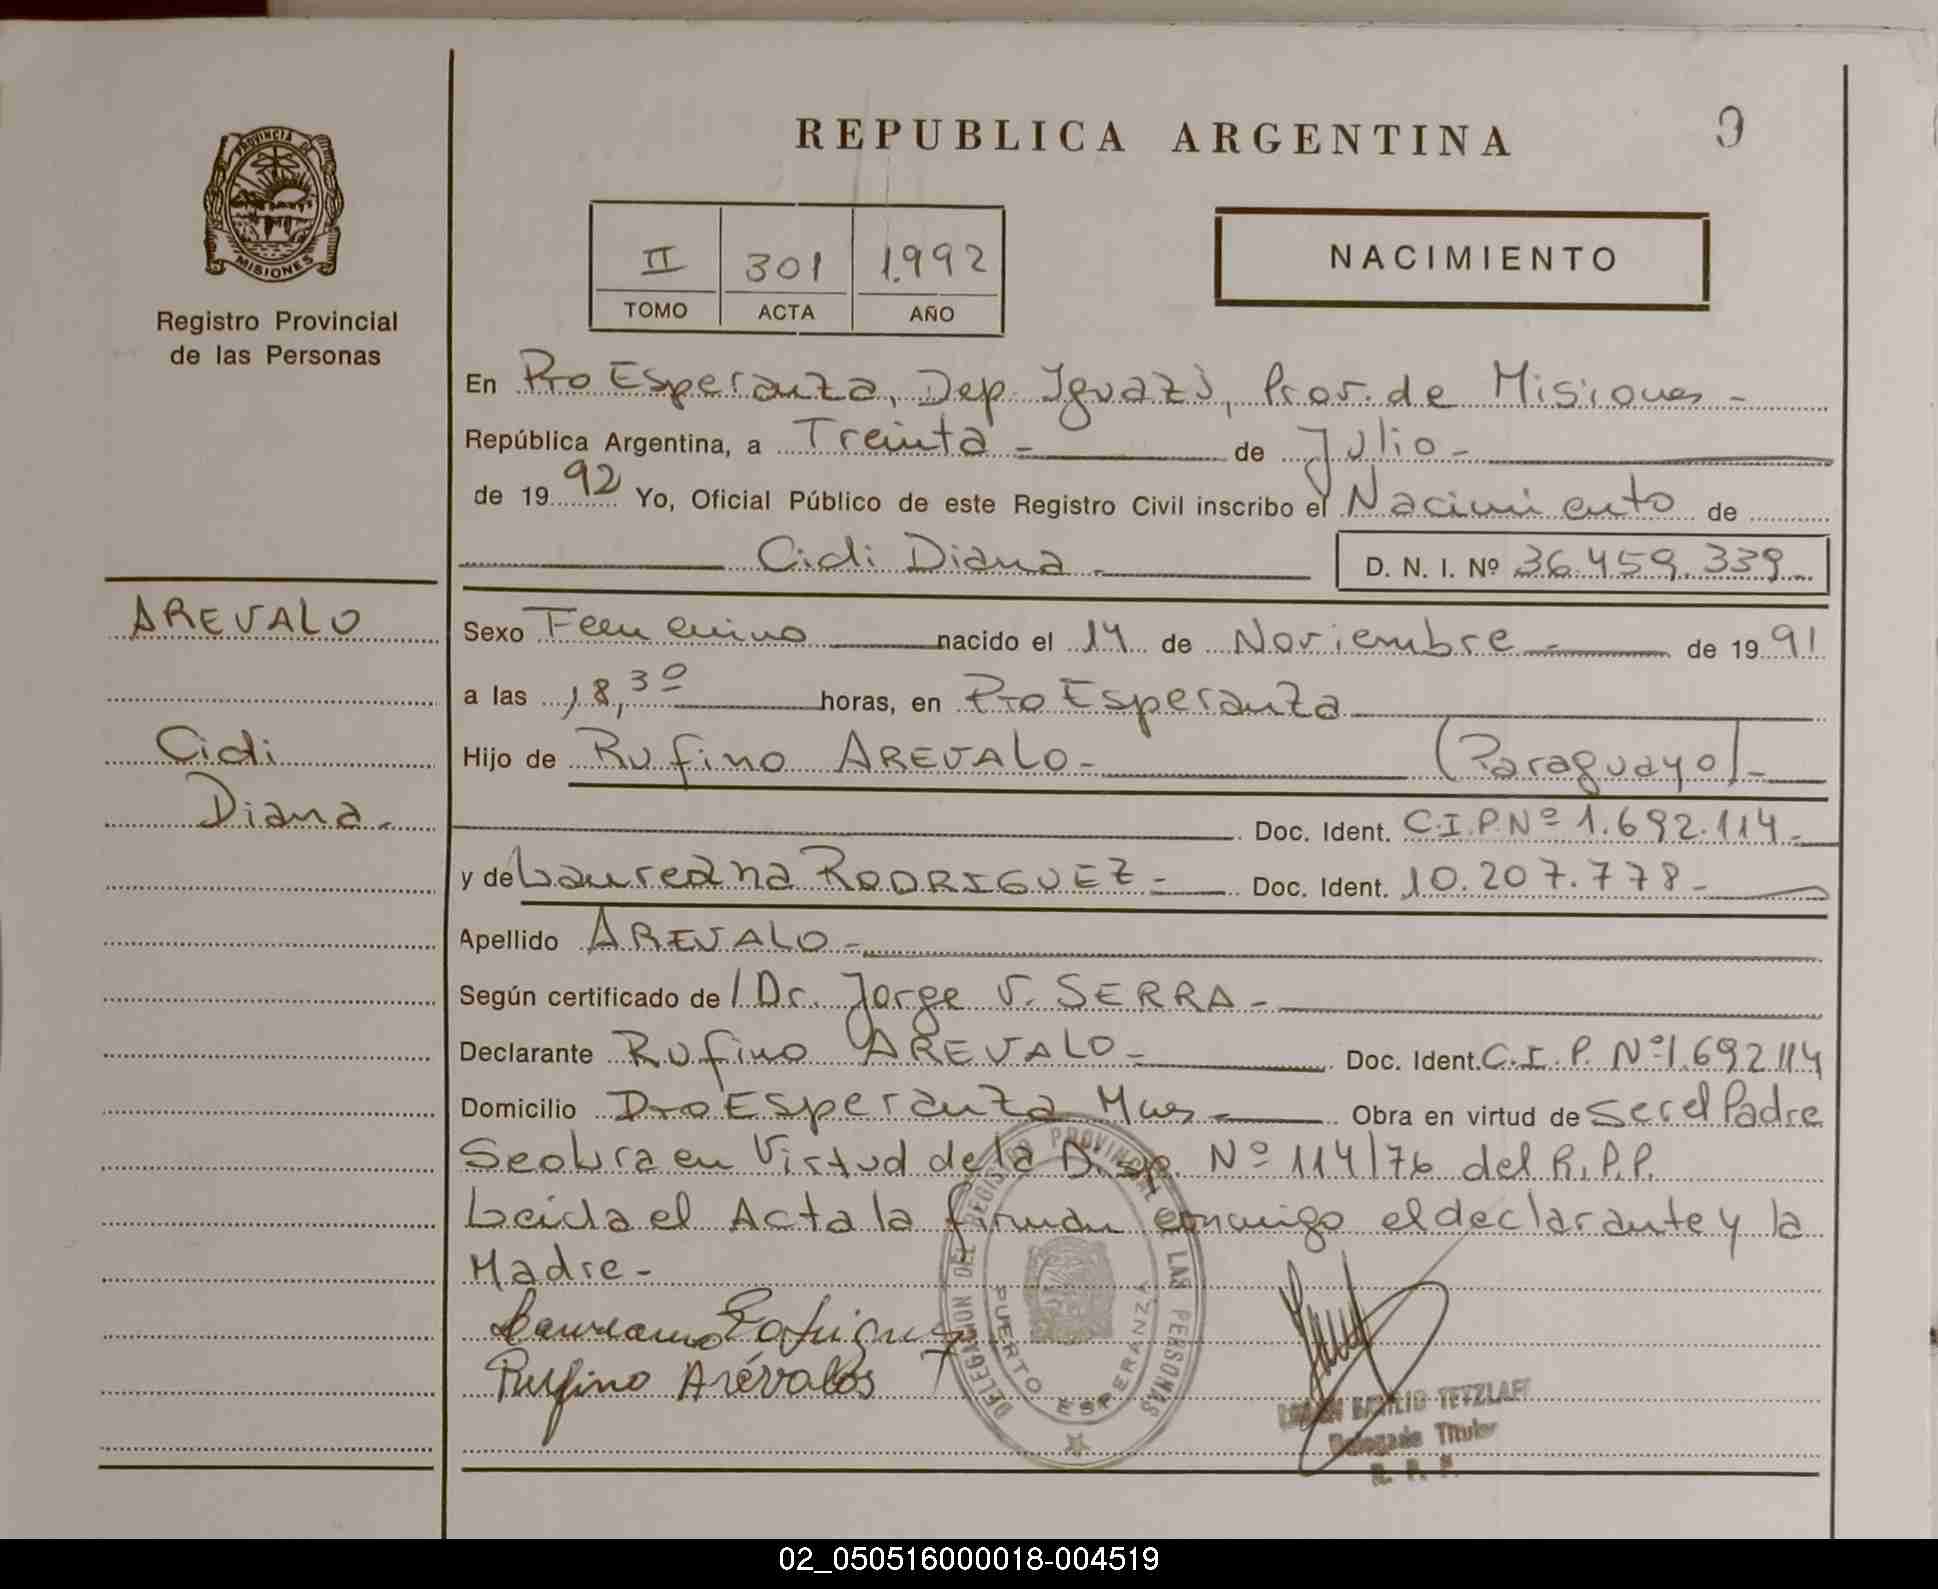 REPUBLICA ARGENTINA
PROVINCIA DE
MISIONES
Registro Provincial
de las Personas
II 301 1.992
TOMO ACTA AÑO
NACIMIENTO
En Pto Esperanza, Dep. Iguazú, Prov. de Misiones -
República Argentina, a Treinta - de Julio -
de 1992 Yo, Oficial Público de este Registro Civil inscribo el Nacimiento de
Cidi Diana - D. N. I. Nº 36.459.339
AREVALO
Cidi
Diana -
Sexo Femenino nacido el 14 de Noviembre - de 1991
a las 18,30 horas, en Pto Esperanza
Hijo de Rufino AREVALO - (Paraguayo) -
Doc. Ident. C.I.P.Nº 1.692.114 -
y de Laureana RODRIGUEZ - Doc. Ident. 10.207.778 -
Apellido AREVALO -
Según certificado de / Dr. Jorge V. SERRA -
Declarante Rufino AREVALO - Doc. Ident. C.I.P. Nº 1.692.114
Domicilio Pto Esperanza Mnes - Obra en virtud de ser el Padre
Se obra en Virtud de la Disp. Nº 114/76 del R.P.P.
Leida el Acta la firman conmigo el declarante y la
Madre -
Rufino Arévalos
DELEGACION DEL REGISTRO PROVINCIAL DE LAS PERSONAS
PUERTO ESPERANZA
TETZLAFF
Delegado Titular
R. P. P.
02_050516000018-004519